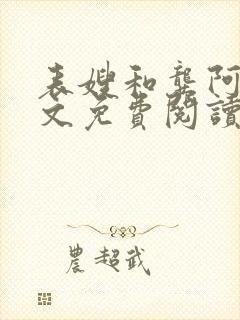 表嫂和龔阿
文免費閱讀
農超武